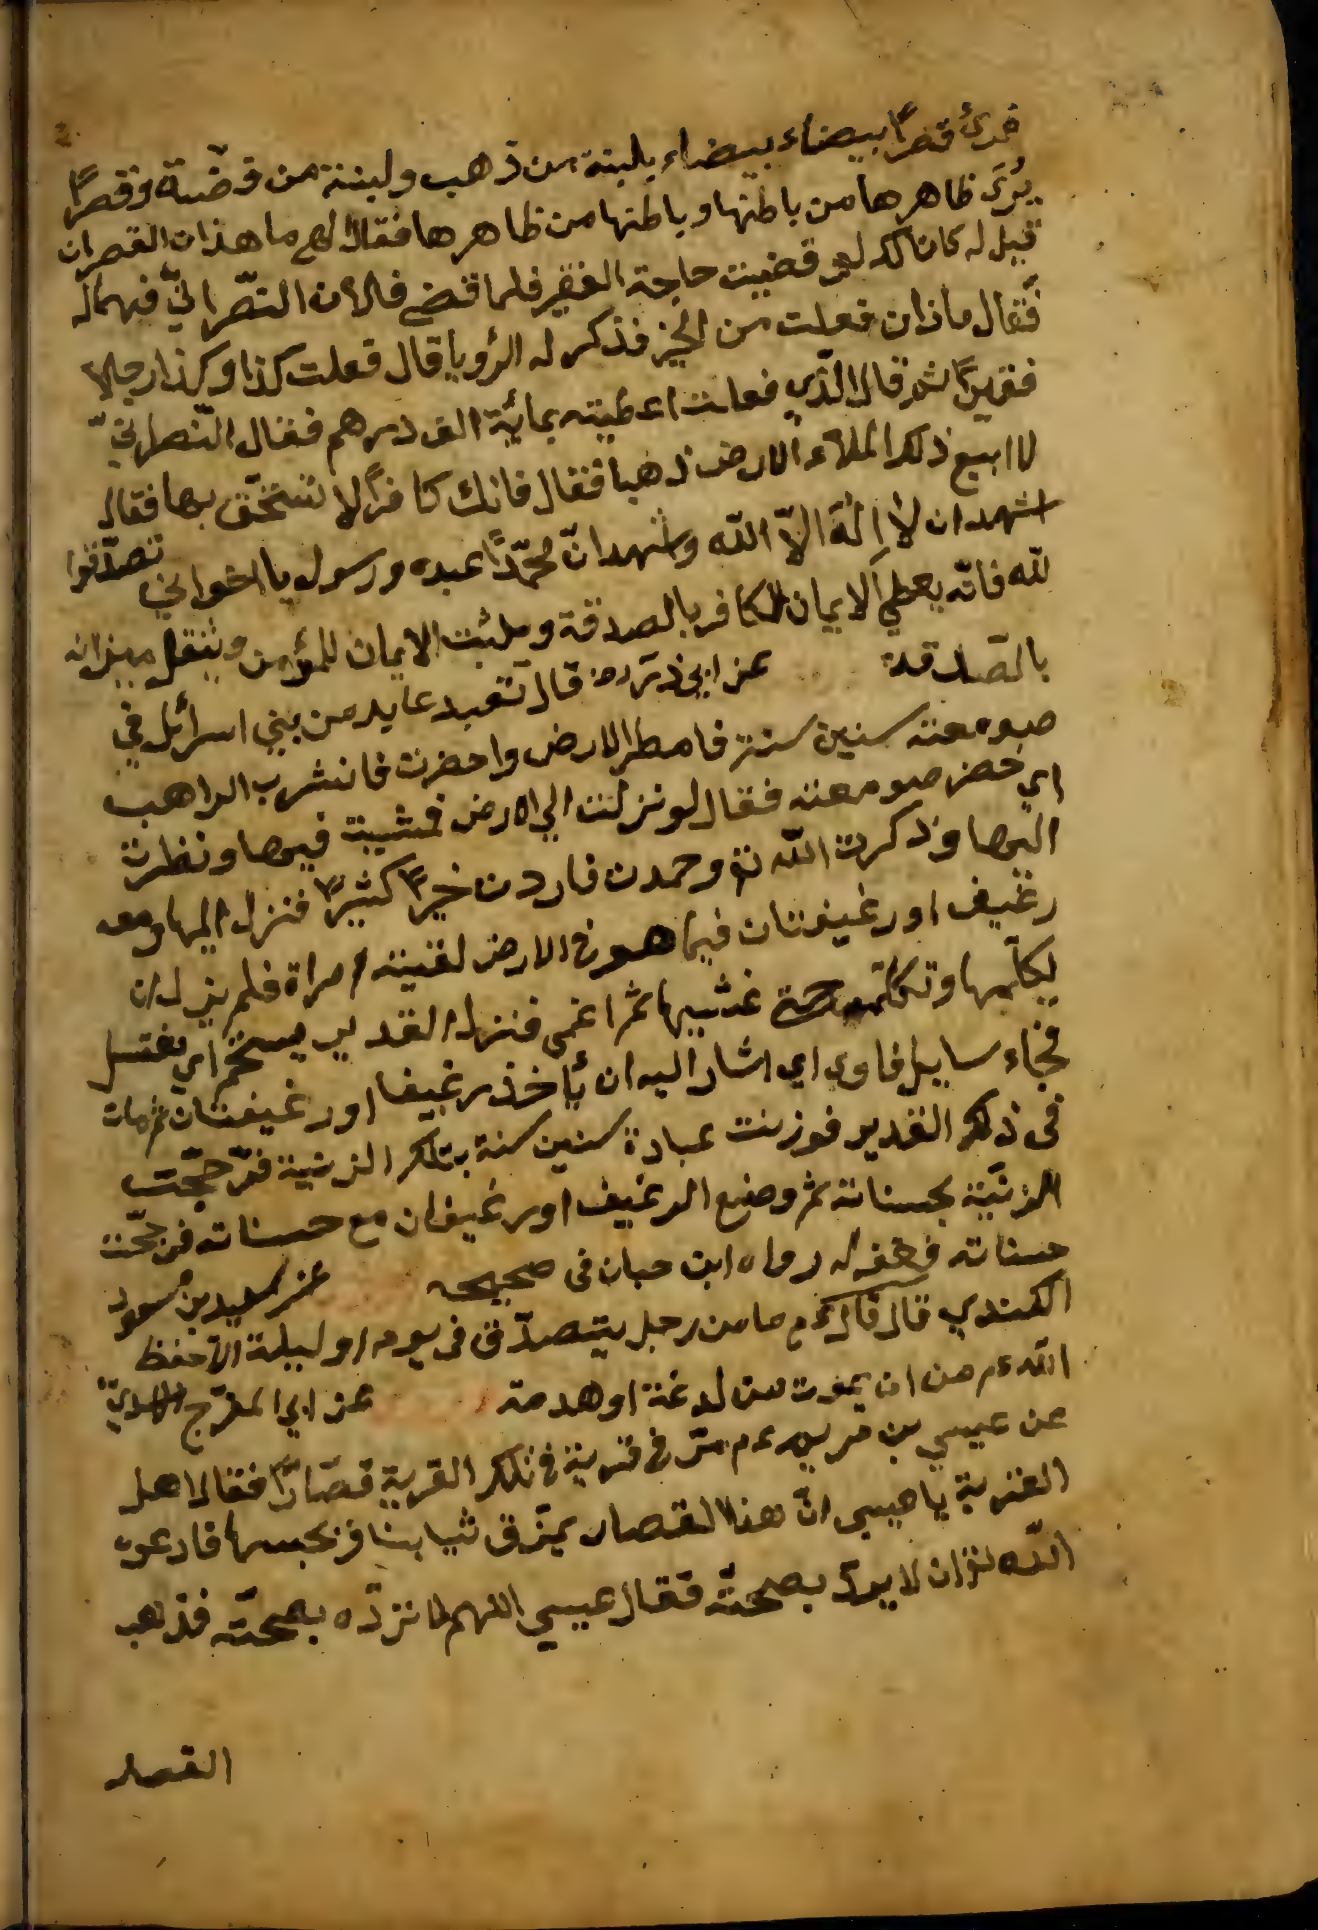 فرئ قصرًا بيضاء بيضاء بلبنة من ذهب ولبنة من فضّة وقصرًا
يُرَى ظاهرها من باطنها وباطنها من ظاهرها فقال الهم ما هذان القصران
قيل له كانا لك لو قضيت حاجة الفقير فلما قضى فلان النّصرانيّ فهما له
فقال ماذا فعلت من الخير فذكر له الرؤيا قال فعلت كذا وكذا رجلا
فقيرًا ثم قال الذي فعلت اعطيته بمائة الف درهم فقال النّصرانيّ
لا ابيع ذلك الملاء الارض ذهبا فقال فانك كافرًا لا تستحّق بها فقال
اشهد ان لا اله الّا اللّه واشهد انّ محمّدًا عبده ورسوله يا اخواني تصدّقوا
للّه فانّه يعطي الايمان للكافر بالصدقة ويثبت الايمان للمؤمن ويثقل ميزانه
بالصّدقة عن ابي ذرّ رض قال تعبد عابد من بني اسرائل في
صومعته ستين سنة فامطر الارض واحضرت فانشرب الراهب
اي حضر صومعته فقال لو نزلت الي الارض فمشيت فيها ونظرت
اليها وذكرت اللّه تع وحمدت فازددت خيرًا كثيرًا فنزل اليها ومعه
رغيف او رغيفتان فبينما هو في الارض لقيته امراة فلم يزل ان
يكلّمها وتكلّمه حتى غشيها ثم اغمى فنزل الغدير يستحم اي يغتسل
فجاء سايل فاوى اي اشار اليه ان يأخذ رغيفا او رغيفتان ثم مات
فى ذلك الغدير فوزنت عبادة ستين سنة بتلك الزنية فرّحجّت
الزنيّة بحسناته ثم وضع الرغيف او رغيفان مع حسناته فرجحّت
حسناته فغفر له رواه ابن حبان فى صحيحه عن سعيد بن مسعود
الكندي قال قال ء م ما من رجل يتصدّق فى يومه او ليلة الّا حفظ
اللّه ء م من ان يموت من لدغة او هدمة عن ابي المفرّج
عن عيسي بن مريم ء م مّر في قرية في تلك القرية قصّارًا فقال اهل
القرية يا عيسى انّ هذا القصار يمزّق ثيابنا ويحبسها فادعوه
اللّه تع ان لا يردّ بصحتّه فقال عيسي اللهم لا تردّه بصحتّه فذهب
القصار